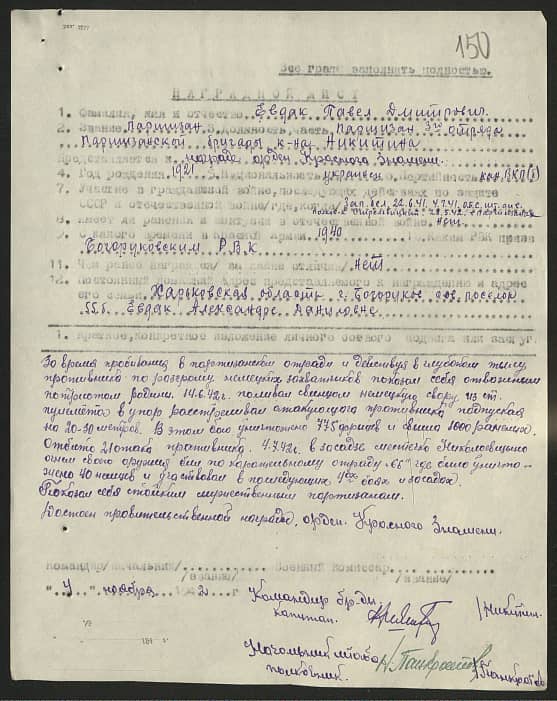 150
Все графы заполнять полностью.
НАГРАДНОЙ ЛИСТ
1. Фамилия, имя и отчество Евдак Павел Дмитрович.
2. Звание Партизан 3. Должность, часть Партизан 3го отряда
Партизанской бригады к-на Никитина
Представляется к награде орден Красного Знамени.
4. Год рождения 1921 5. Национальность украинец 6. Партийность кан. ВКП(б)
7. Участие в гражданской войне, последующих действиях по защите
СССР и отечественной войне /где, когда/ Зап. 22.6.41. 4.7.41.
28.5.42. с партизанами
8. Имеет ли ранения и контузии в отечественной войне. Нет.
9. С какого времени в Красной Армии 1940 10. Каким РВК призван
Богодуховским Р.В.К
11. Чем ранее награжден / за какие отличия/ Нет
12. Постоянный домашний адрес представляемого к награждению и адрес
его семьи Харьковская область г. Богодухов поселок
Евдак Александре Даниловне
1. Краткое, конкретное изложение личного боевого подвига или заслуг.
За время пребывания в партизанском отряде и действуя в глубоком тылу
противника по разгрому немецких захватчиков показал себя отважным
патриотом родины. 14.6.42г. поливал свинцом немецкую свору из ст.
пулемёта в упор расстреливал атакующего противника подпуская
на 20-30 метров. В этом бою уничтожено 775 фрицев и свыше 1000 раненых.
Отбито 21 атака противника. 4.7.42г. в засаде местечко
огнем своего оружия бил по карательному отряду "СС" где было уничто-
жено 40 немцев и участвовал в последующих боях и засадах.
Показал себя стойким мужественным партизанам.
Достоен правительственной награде, орден. Красного Знамени.
Командир/начальник/ Военный комиссар
/звание/ /звание/
"4" ноября 1942 г
Командир бр-ды
капитан. /Никитин.
Начальник штаба
полковник. Н. Панкратов /Панкратов